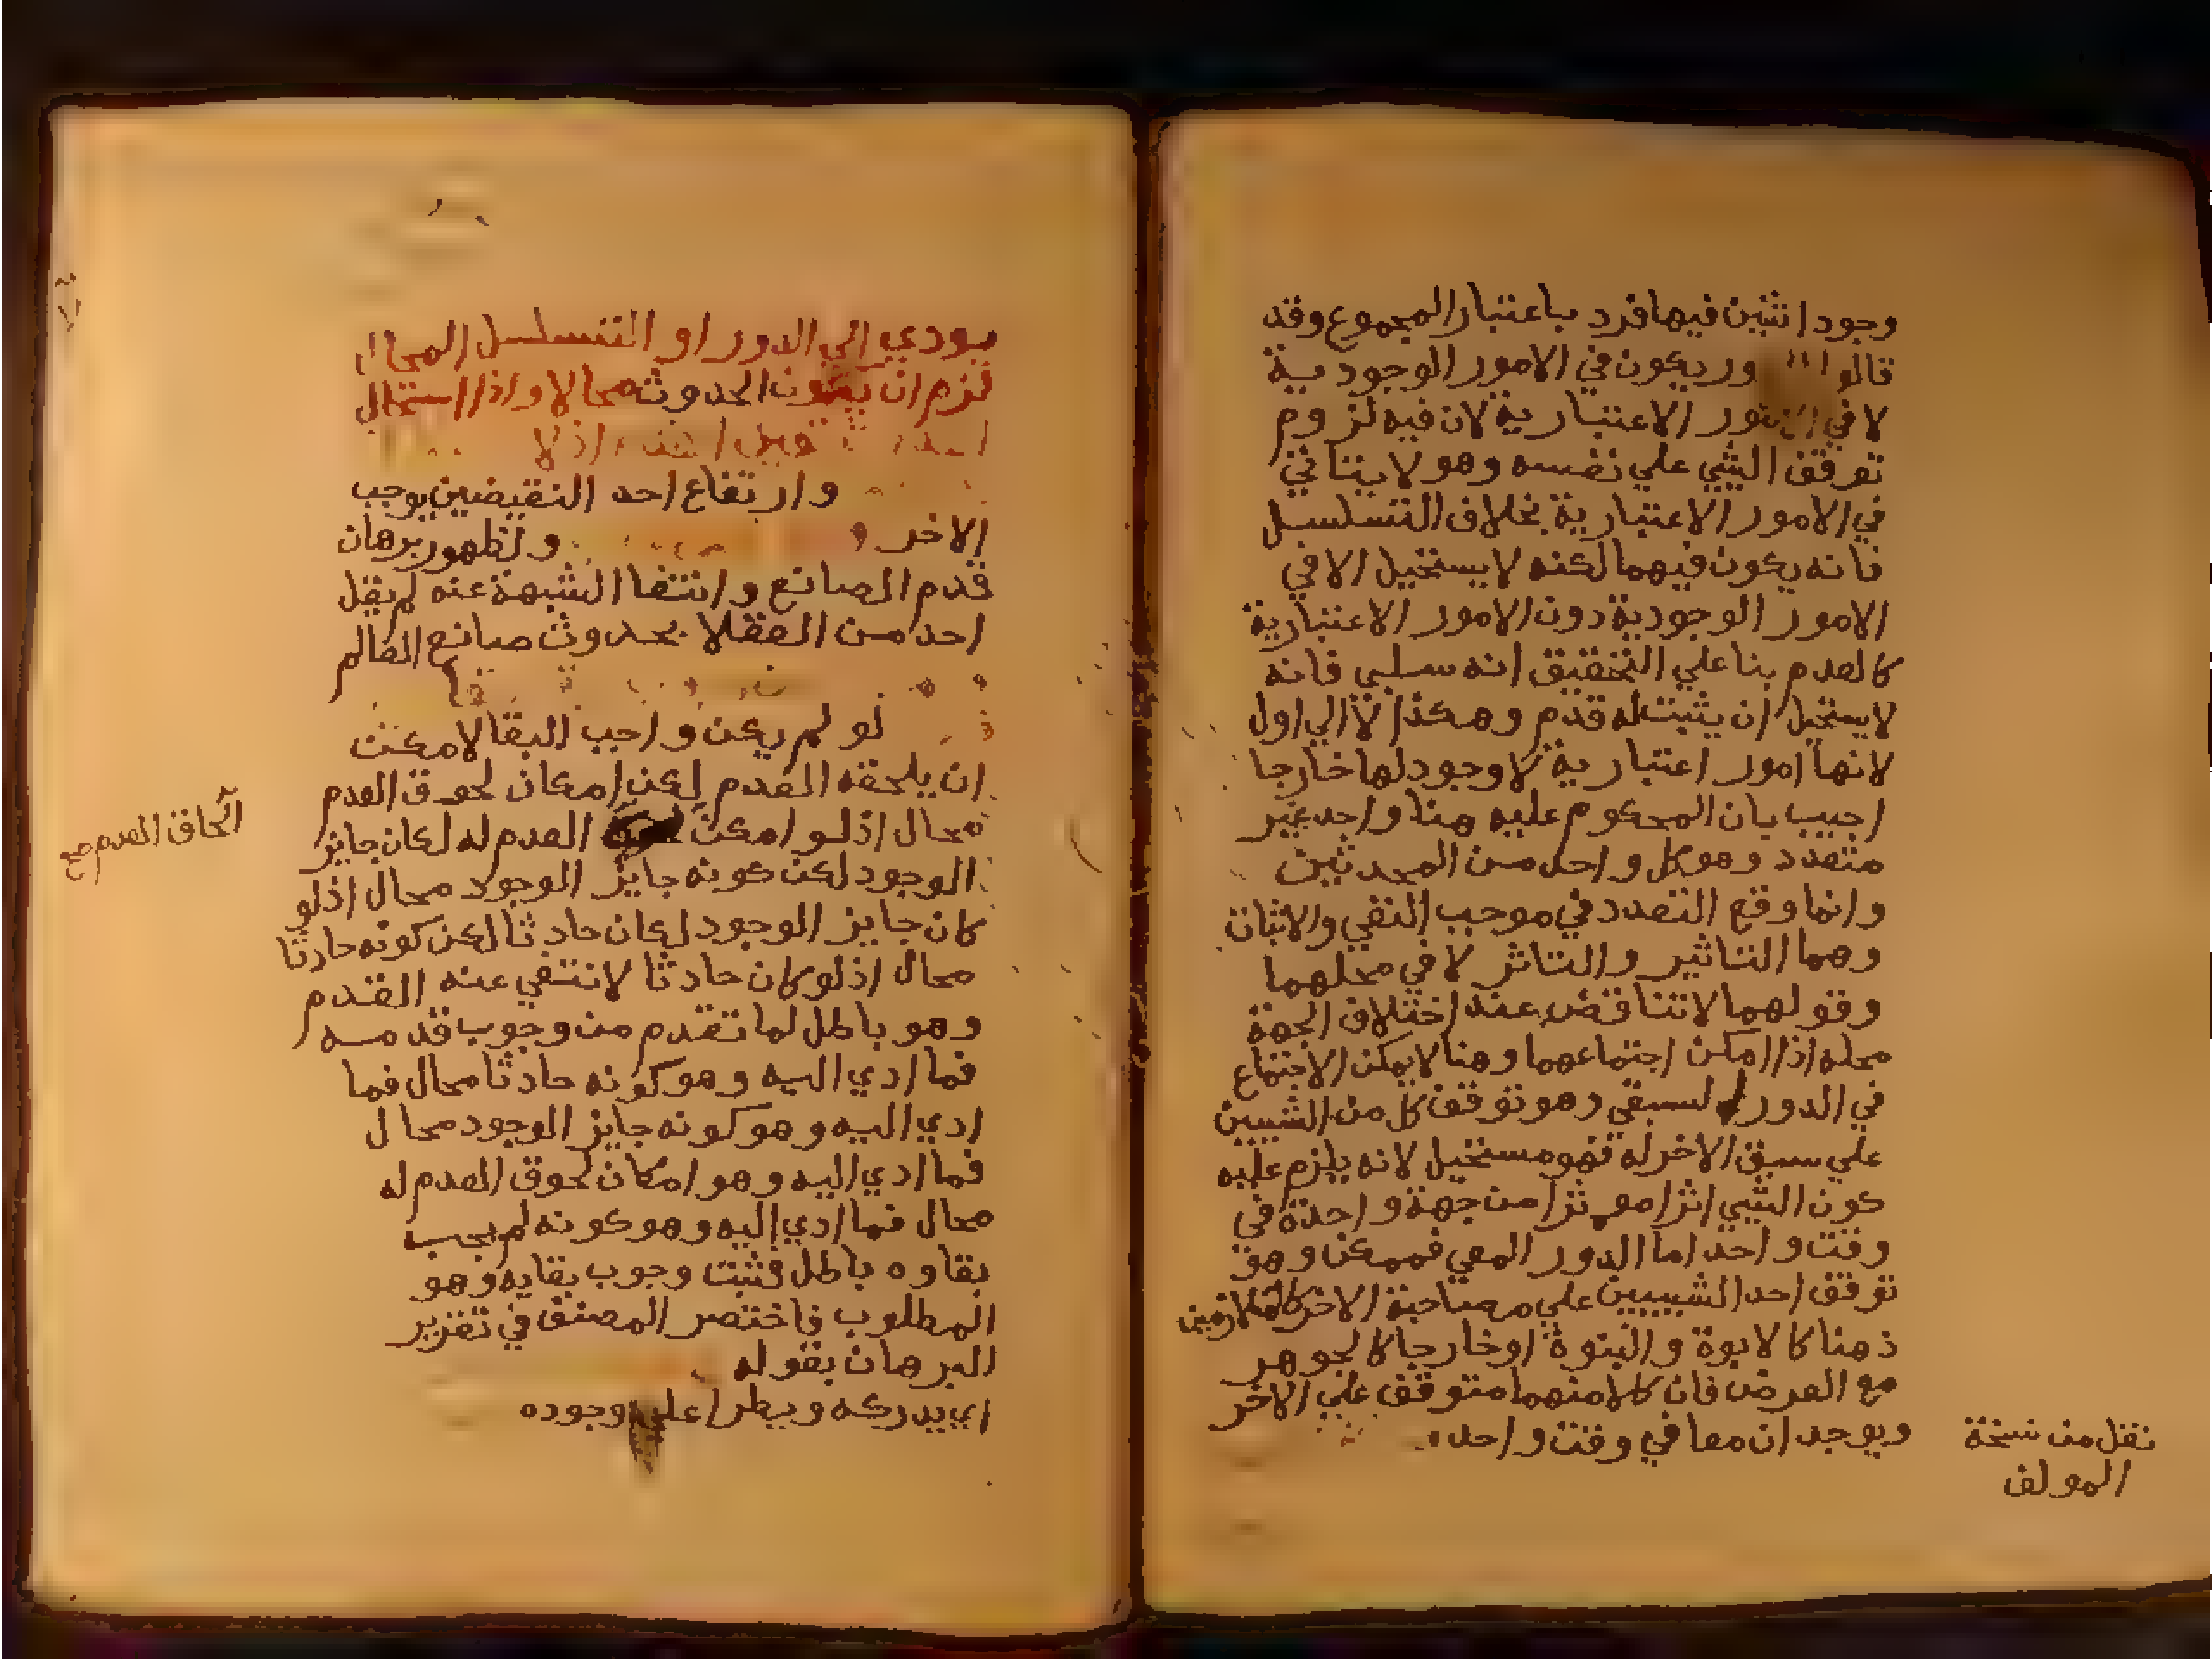 وجود اثنين فيها فرد باعتبار المجموع وقد
قالوا ور يكون في الامور الوجودية
لا في الامور الاعتبارية لان فيه لزوم
توقف الشي علي نفسه وهو لا يتنافي
في الامور الاعتبارية بخلاف التسلسل
فانه يكون فيهما لكنه لا يستحيل الا في
الامور الوجودية دون الامور الاعتبارية
كالعدم بنا علي التحقيق انه سلبي فانه
لا يستحيل ان يثبت له قدم وهكذا لا الي اول
لانها امور اعتبارية لا وجود لها خارجا
اجيب بان المحكوم عليه هنا واحد غير
متعدد وهو كل واحد من المحدثين
وانما وقع التعدد في موجب النفي والاثبات
وهما التاثير والتاثر لا في محلهما
وقولهما لا تناقض عند اختلاف الجهة
محله اذا امكن اجتماعهما وهنا لا يمكن الاجتماع
في الدور السبقي وهو توقف كل من الشيين
علي سبق الاخر له فهو مستحيل لانه يلزم عليه
كون الشي اثرا موثرا من جهة واحدة في
وقت واحد اما الدور المعي فممكن وهو
توقف احد الشيين علي مصاحبة الاخر كالمتلازمين
ذهنا كالابوة والبنوة او خارجا كالجوهر
مع العرض فان كلا منهما متوقف علي الاخر
ويوجدان معا في وقت واحد
نقل من نسخة
المولف
يودي الي الدور او التسلسل المحال
لزم ان يكون الحدوث محالا واذا استحال
اذ لا
وارتفاع احد النقيضين يوجب
الاخر ولظهور برهان
قدم الصانع وانتفا الشبهة عنه لم يقل
احد من العقلا بحدوث صانع العالم
لو لم يكن واجب البقا لامكن
ان يلحقه العدم لكن امكان لحوق العدم
محال اذ لو امكن العدم له لكان جايز
الوجود لكن كونه جايز الوجود محال اذ لو
كان جايز الوجود لكان حادثا لكن كونه حادثا
محال اذ لو كان حادثا لانتفي عنه القدم
وهو باطل لما تقدم من وجوب قدمه
فما ادي اليه وهو كونه حادثا محال فما
ادي اليه وهو كونه جايز الوجود محال
فما ادي اليه وهو امكان لحوق العدم له
محال فما ادي اليه وهو كونه لم يجب
بقاوه باطل فثبت وجوب بقايه وهو
المطلوب فاختصر المصنف في تقرير
البرهان بقوله
اي يدركه ويطرا علي وجوده
الحاق العدم صح